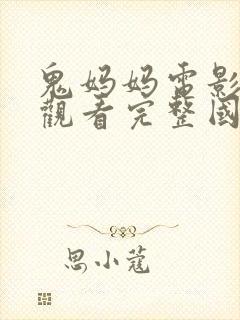 鬼妈妈電影
觀看完整國
思小蔻